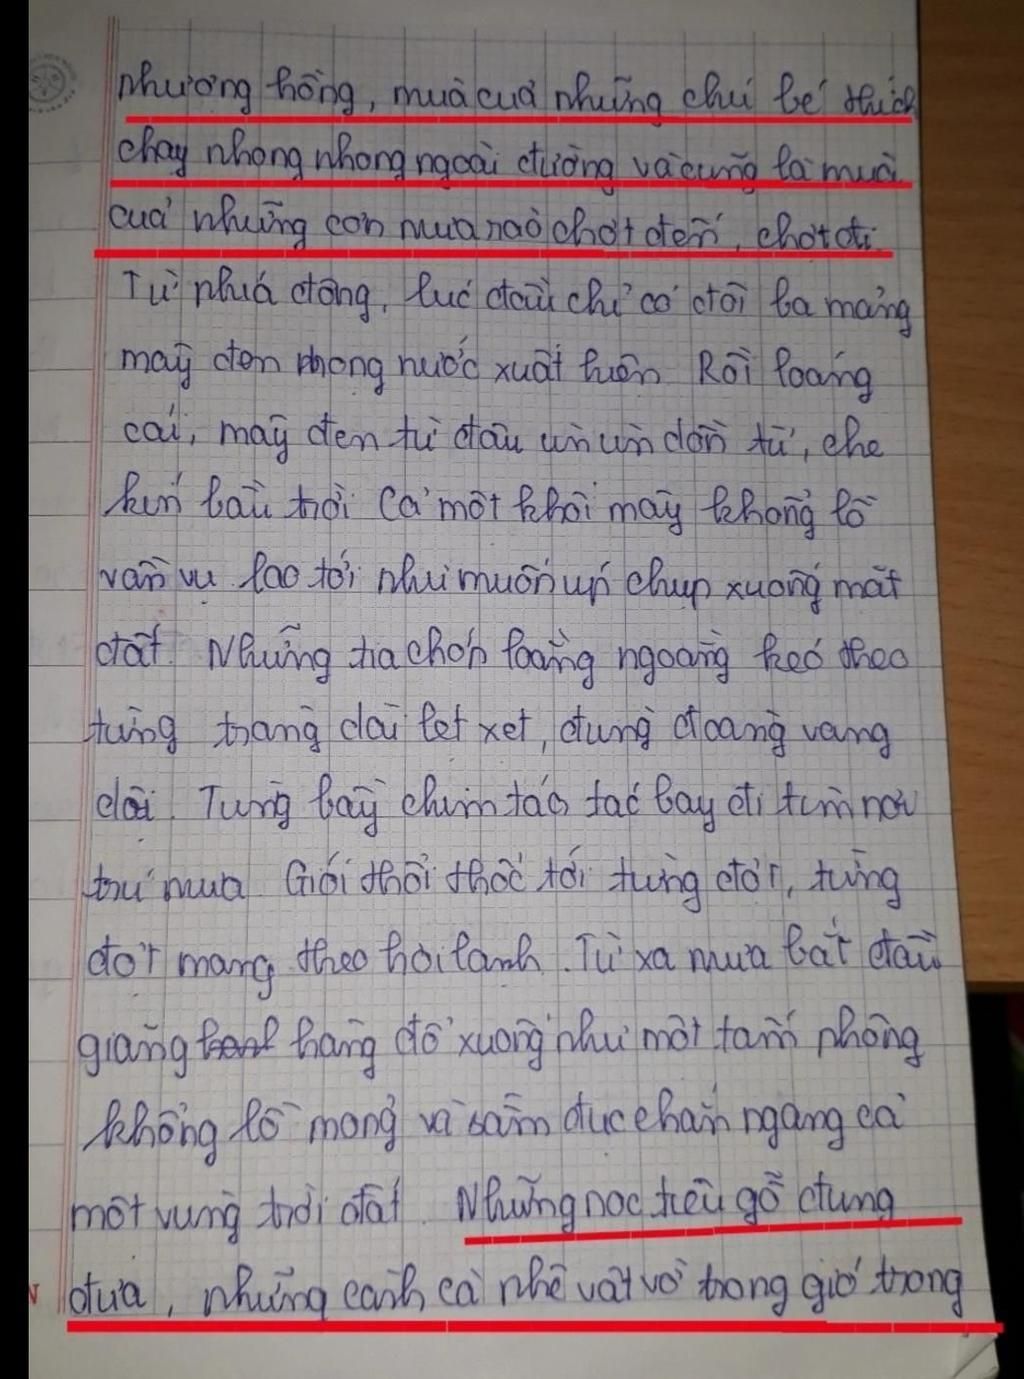 phương hồng, mùa của những chú bé thích
chạy nhong nhong ngoài đường và cũng là mùa
của những cơn mưa rào chợt đến, chợt đi.
Từ phía đông, lúc đầu chỉ có đôi ba mảng
mây đen mọng nước xuất hiện Rồi loáng
cái, mây đen từ đâu ùn ùn dồn tứ, che
kín bầu trời Cả một khối mây khổng lồ
vần vụ lao tới như muốn úp chụp xuống mặt
đất. Những tia chớp loằng ngoằng kéo theo
từng tràng dài lẹt xẹt, đùng đoàng vang
dội. Từng bầy chim táo tác bay đi tìm nơi
trú mưa Gió thổi thốc tới từng đợt, từng
đợt mang theo hơi lạnh. Từ xa mưa bắt đầu
giăng hàng đổ xuống như một tấm phông
khổng lồ mỏng và sẫm đục chắn ngang cả
một vùng trời đất. Những nọc tiêu gỗ đung
đưa, những cành cà phê vật vờ trong gió trong